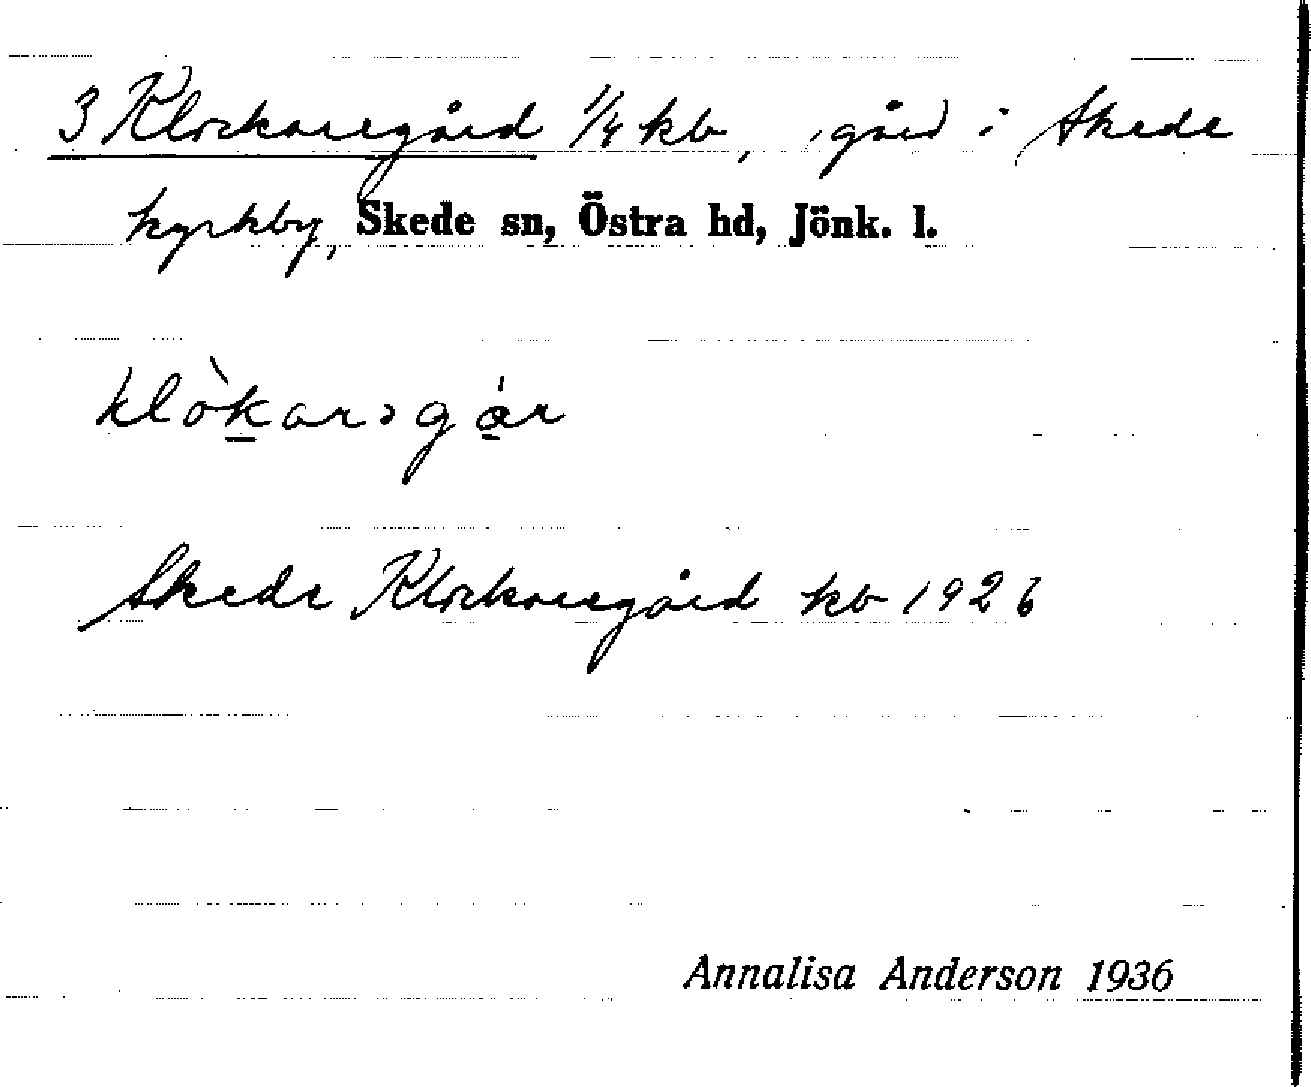 3 Klockaregård 1/4 kb, gård i Skede
kyrkby, Skede sn, Östra hd, Jönk. l.
klòkarəgár
Skede Klockaregård kb 1926
Annalisa Anderson 1936